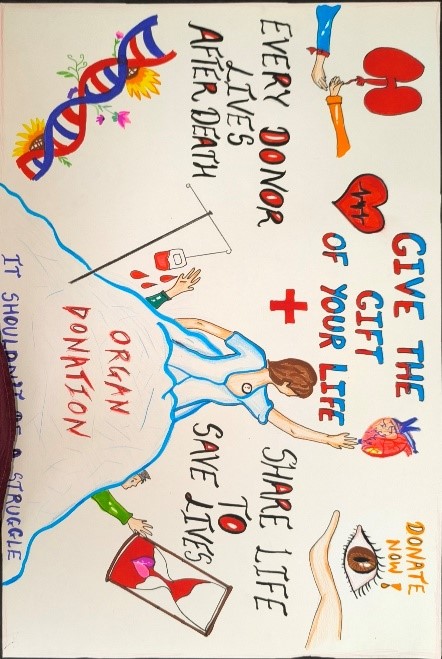 GIVE THE
GIFT
OF YOUR LIFE
DONATE
NOW!
EVERY DONOR
LIVES
AFTER DEATH
SHARE LIFE
TO
SAVE LIVES
ORGAN
DONATION
IT SHOULDN'T BE A STRUGGLE